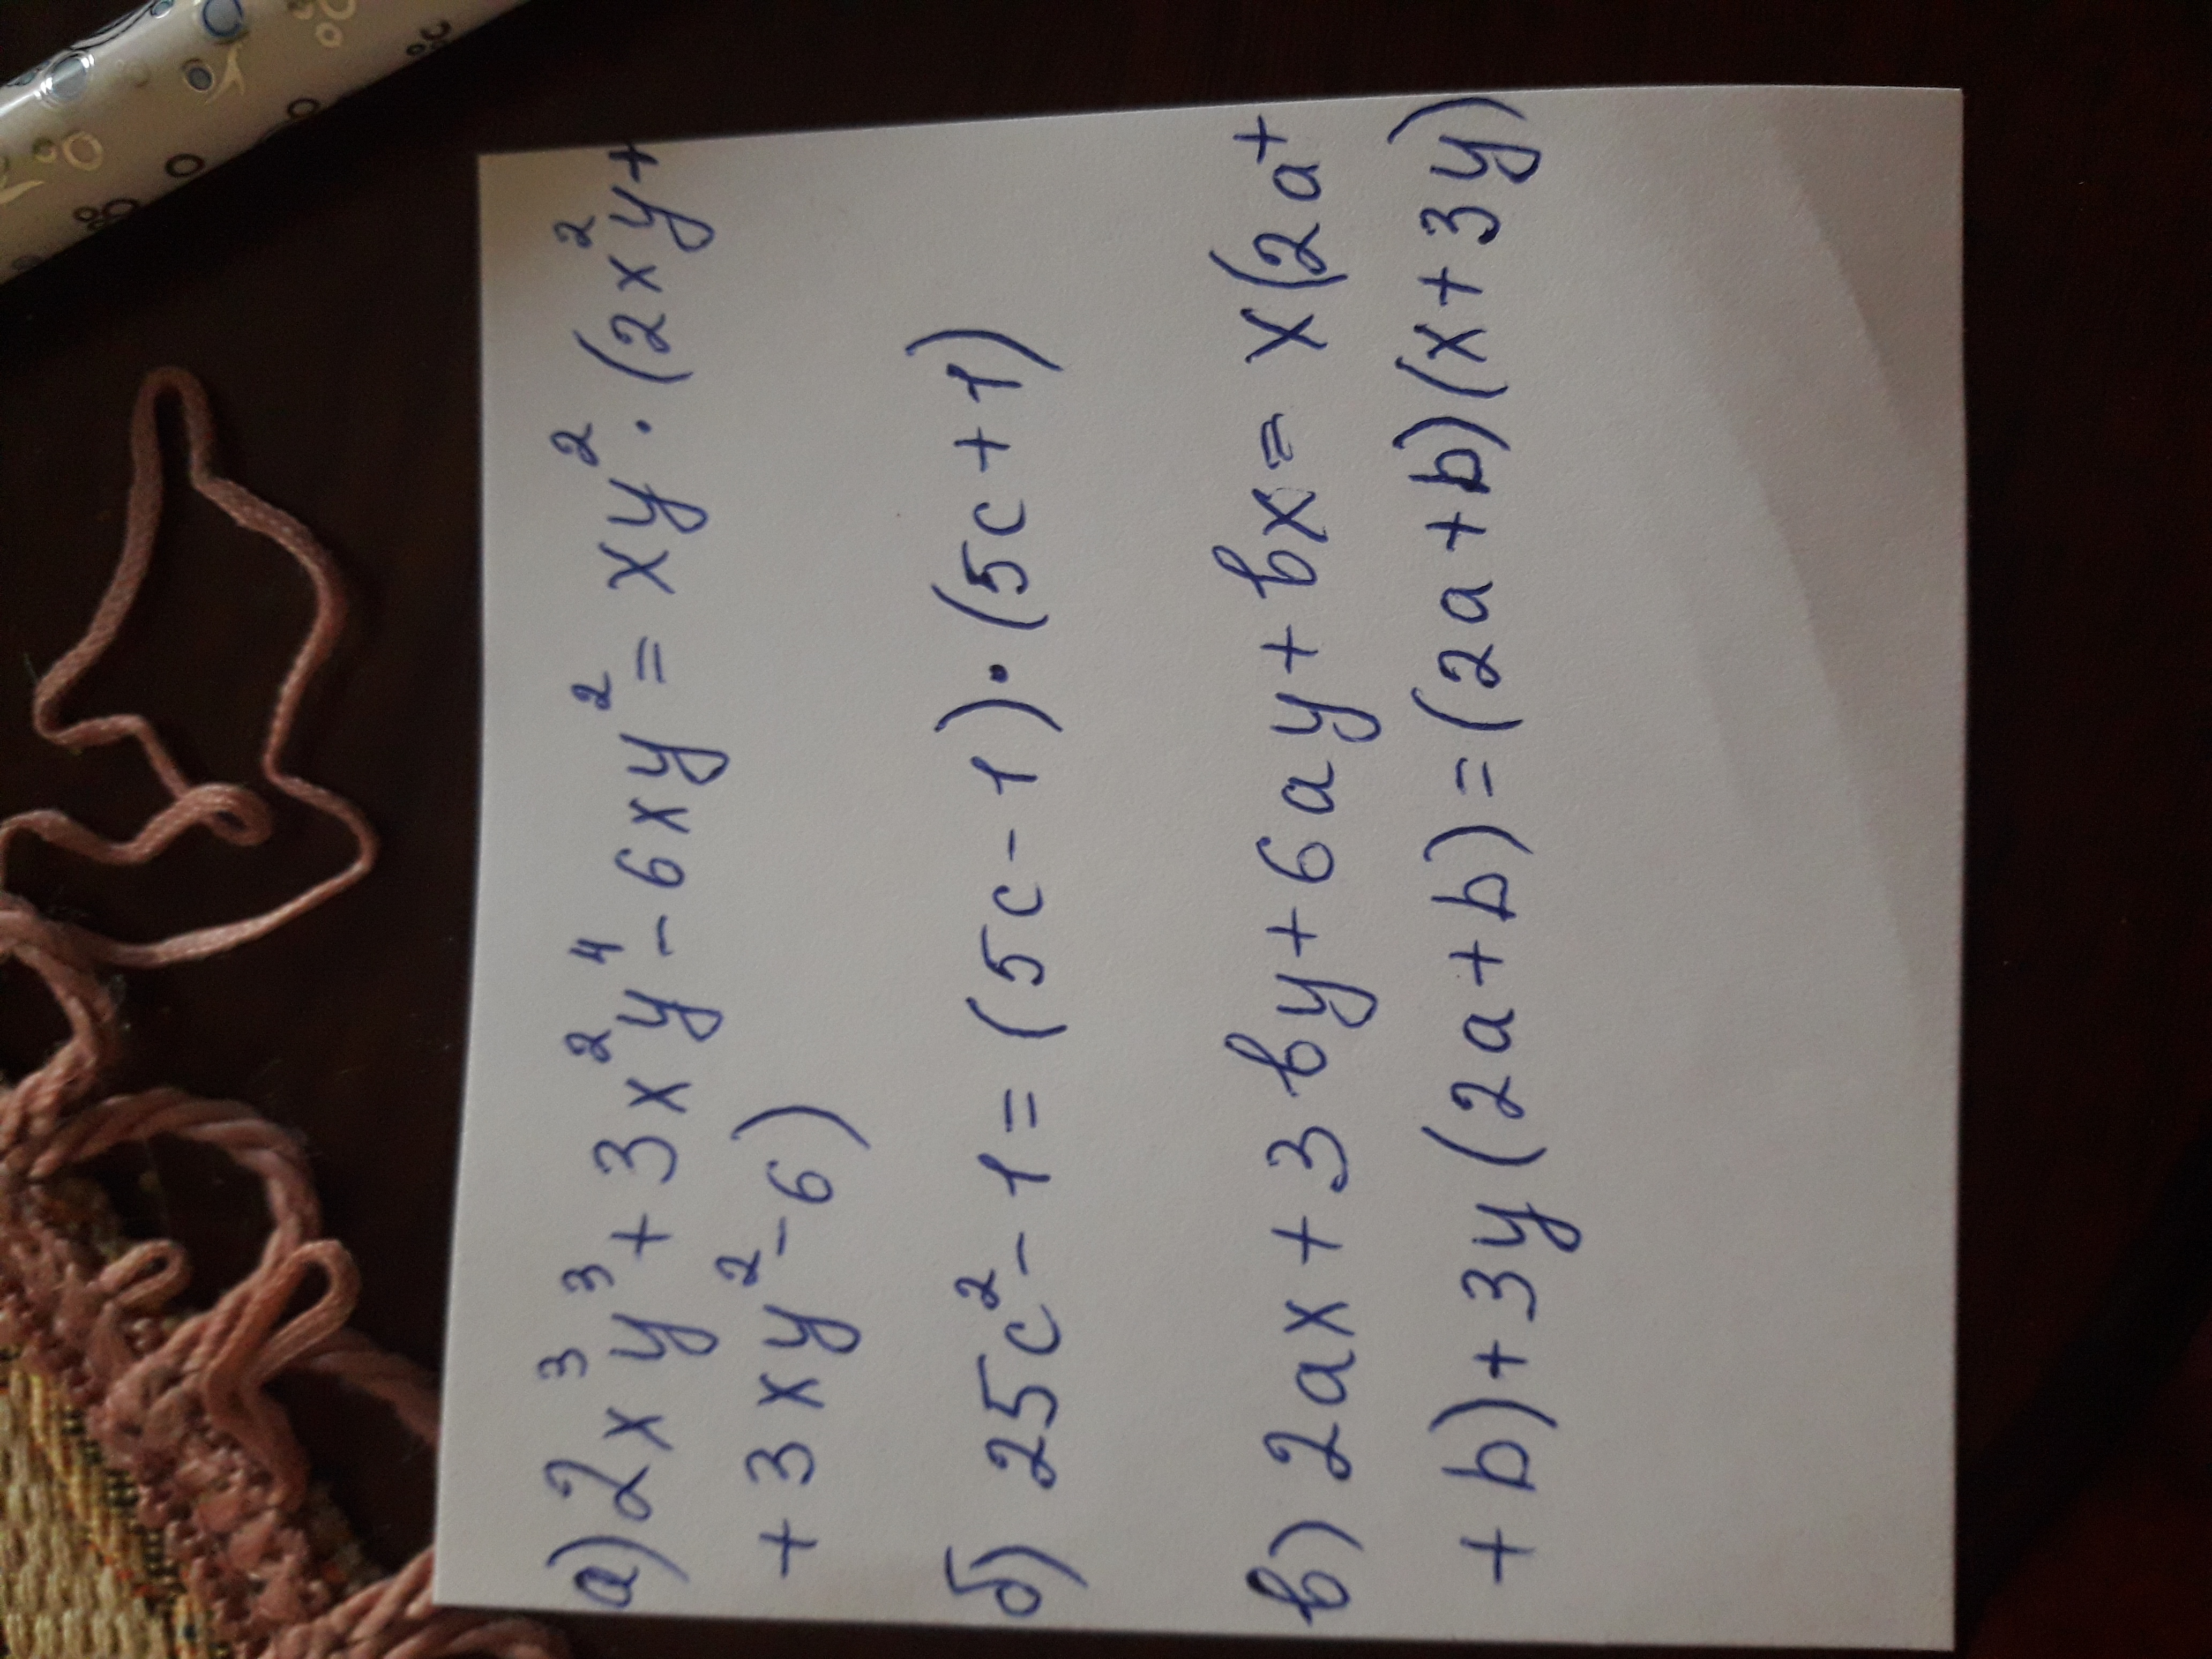 а) 2x³y³ + 3x²y⁴ - 6xy² = xy² · (2x²y +
+ 3xy² - 6)
б) 25c² - 1 = (5c - 1) · (5c + 1)
в) 2ax + 3by + 6ay + bx = x(2a +
+ b) + 3y(2a + b) = (2a + b)(x + 3y)